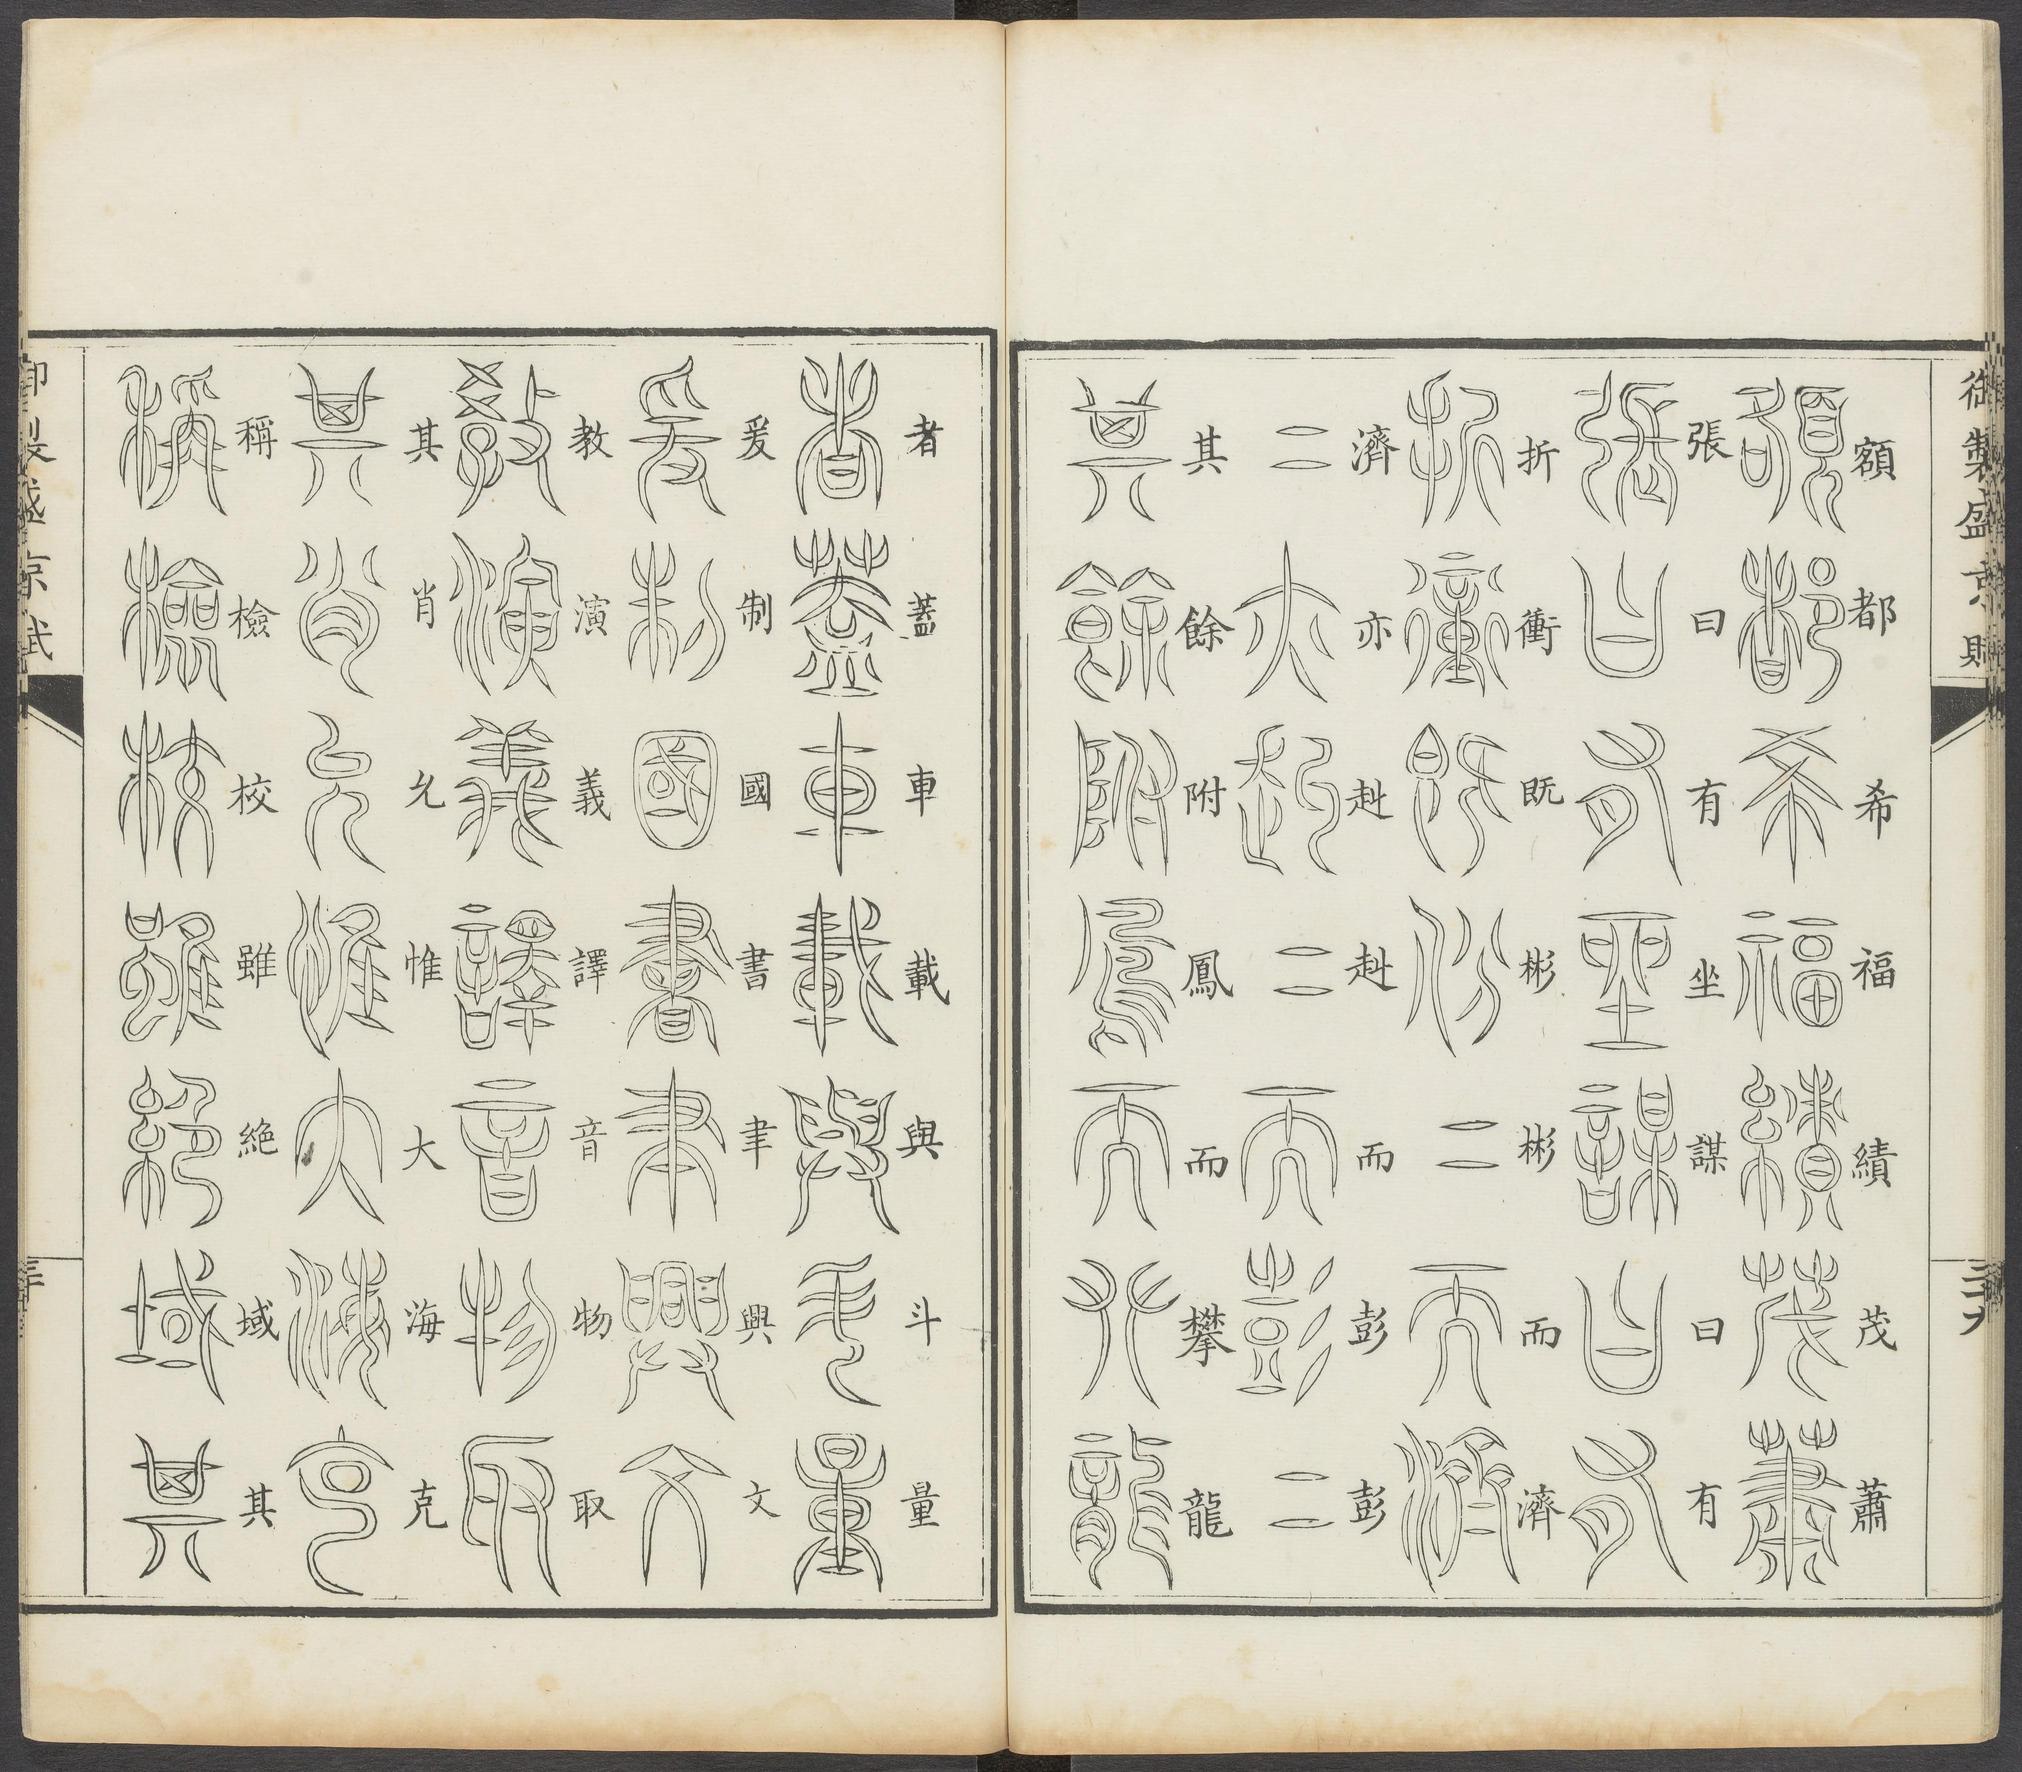 御製盛京賦
二十九
額都希福績茂蕭
張曰有坐謀曰有
折衝既彬彬而濟
濟亦赳赳而彭彭
其餘附鳳而攀龍
者蓋車載與斗量
爰制國書聿興文
教演義譯音物取
其肖允惟大海克
稱檢校雖絶域其
御製盛京賦
三十